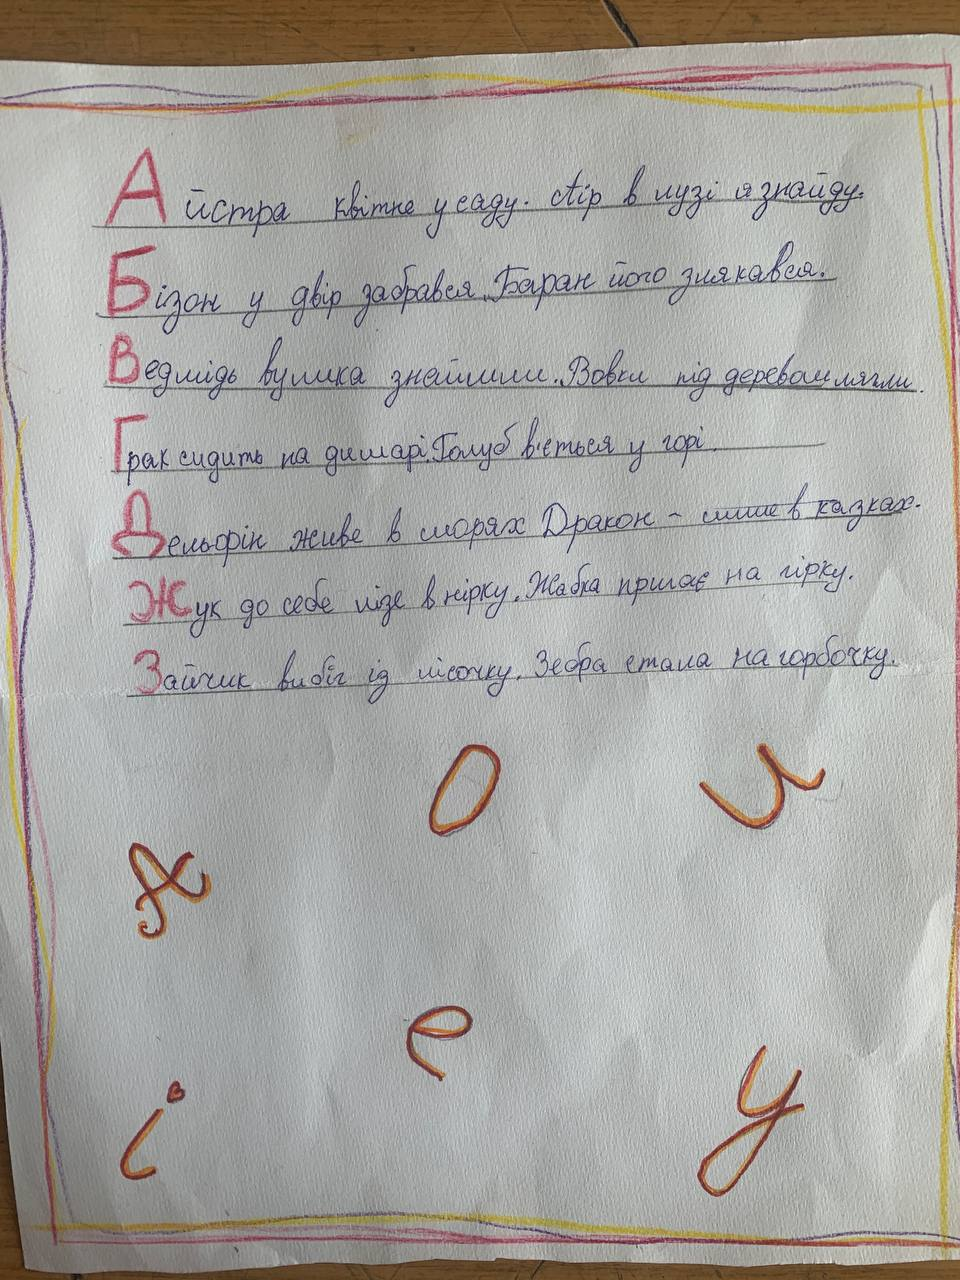 Айстра квітне у саду. Аір в лузі я знайду.
Бізон у двір забрався. Баран його злякався.
Ведмідь вулика знайшли. Вовки під деревом лягли.
Грак сидить на димарі. Голуб в'ється у горі.
Дельфін живе в морях Дракон - лише в казках.
Жук до себе лізе в нірку. Жабка пригає на гірку.
Зайчик вибіг із лісочку. Зебра стала на горбочку.
О и
А
е
і у